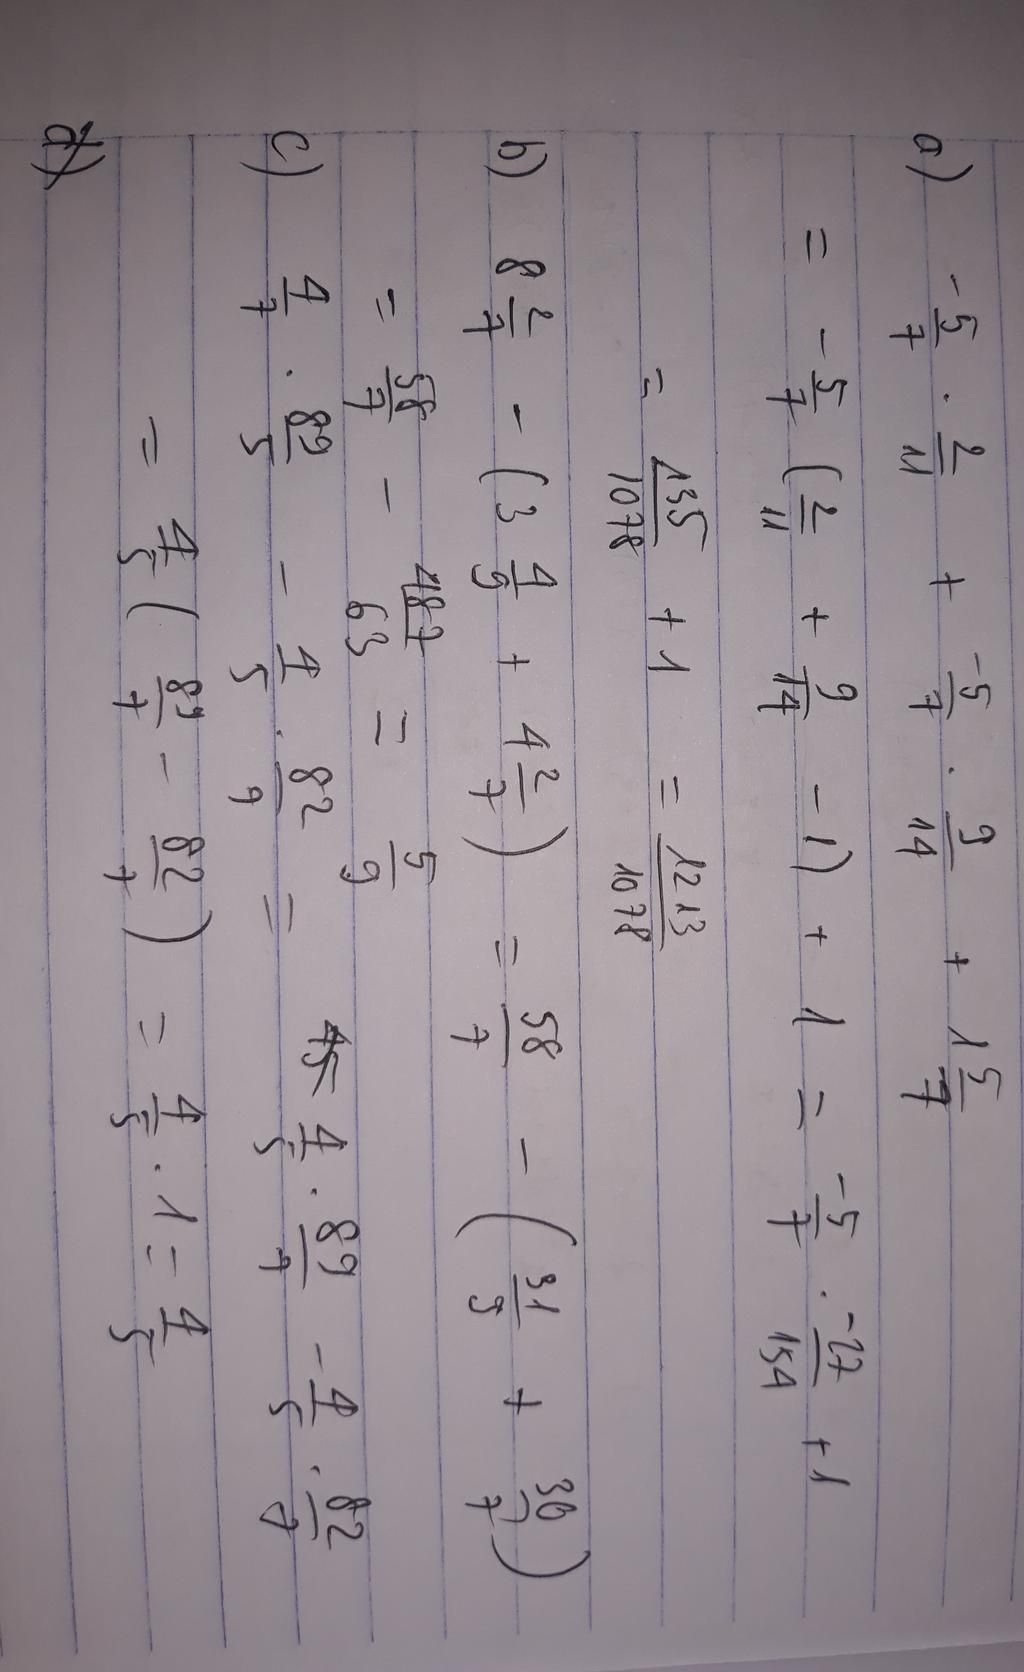 a) -5/7 . 2/11 + -5/7 . 9/14 + 1 5/7
= -5/7 (2/11 + 9/14 - 1) + 1 = -5/7 . -27/154 + 1
= 135/1078 + 1 = 1213/1078
b) 8 2/7 - (3 4/9 + 4 2/7) = 58/7 - (31/9 + 30/7)
= 58/7 - 487/63 = 5/9
c) 4/7 . 89/5 - 4/5 . 82/7 = 4/5 . 89/7 - 4/5 . 82/7
= 4/5 (89/7 - 82/7) = 4/5 . 1 = 4/5